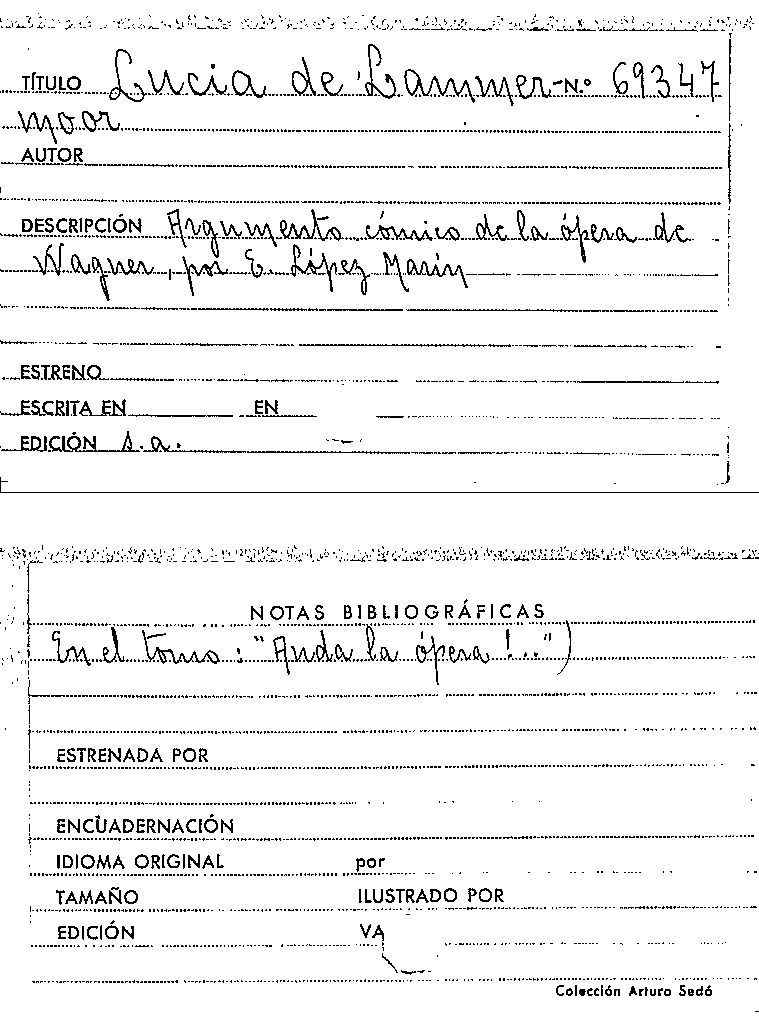 TÍTULO Lucia de Lammer- N.º 69347
moor
AUTOR
DESCRIPCIÓN Argumento cómico de la ópera de
Wagner, por E. López Marín
ESTRENO
ESCRITA EN EN
EDICIÓN s.a.
NOTAS BIBLIOGRÁFICAS
En el tomo: "Anda la ópera!..")
ESTRENADA POR
ENCUADERNACIÓN
IDIOMA ORIGINAL por
TAMAÑO ILUSTRADO POR
EDICIÓN VA
Colección Arturo Sedó